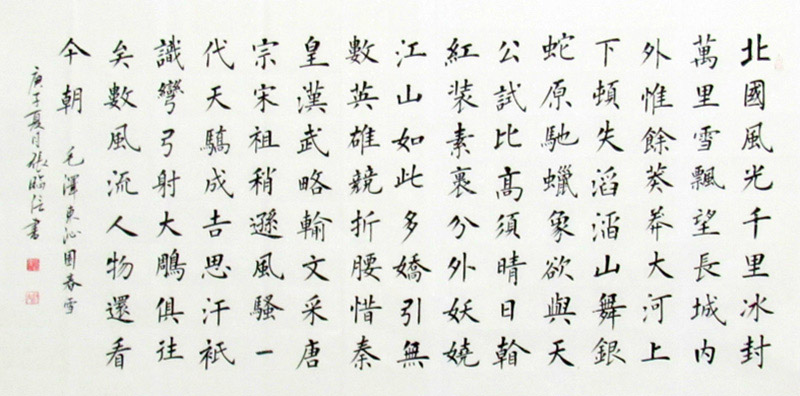 北國風光千里冰封
萬里雪飄望長城內
外惟餘莽莽大河上
下頓失滔滔山舞銀
蛇原馳蠟象欲與天
公試比高須晴日看
紅裝素裹分外妖嬈
江山如此多嬌引無
數英雄競折腰惜秦
皇漢武略輸文采唐
宗宋祖稍遜風騷一
代天驕成吉思汗衹
識彎弓射大鵰俱往
矣數風流人物還看
今朝 毛澤東沁園春雪
庚子夏月張臨書